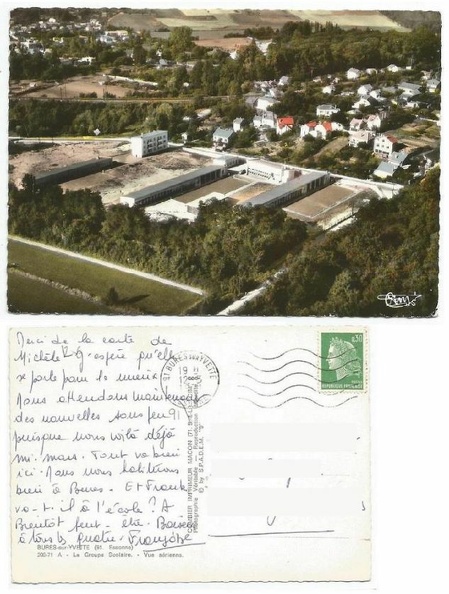 Cim
Merci de la carte de
Michèle J'espère qu'elle
se porte pour le mieux
Nous attendons maintenant
des nouvelles sans feu 91
puisque nous voilà déjà
mi-mars. Tout va bien
ici. Nous nous habituons
bien à Bures. Et Franck
va-t-il à l'école? A
Bientôt peut-être. Baisers
à tous les quatre. Françoise
BURES-sur-YVETTE (91. Essonne)
280-71 A - Le Groupe Scolaire. - Vue aérienne.
COMBIER IMPRIMEUR MACON
© by S.P.A.D.E.M.
91 BURES SUR YVETTE
0,30
REPUBLIQUE FRANÇAISE